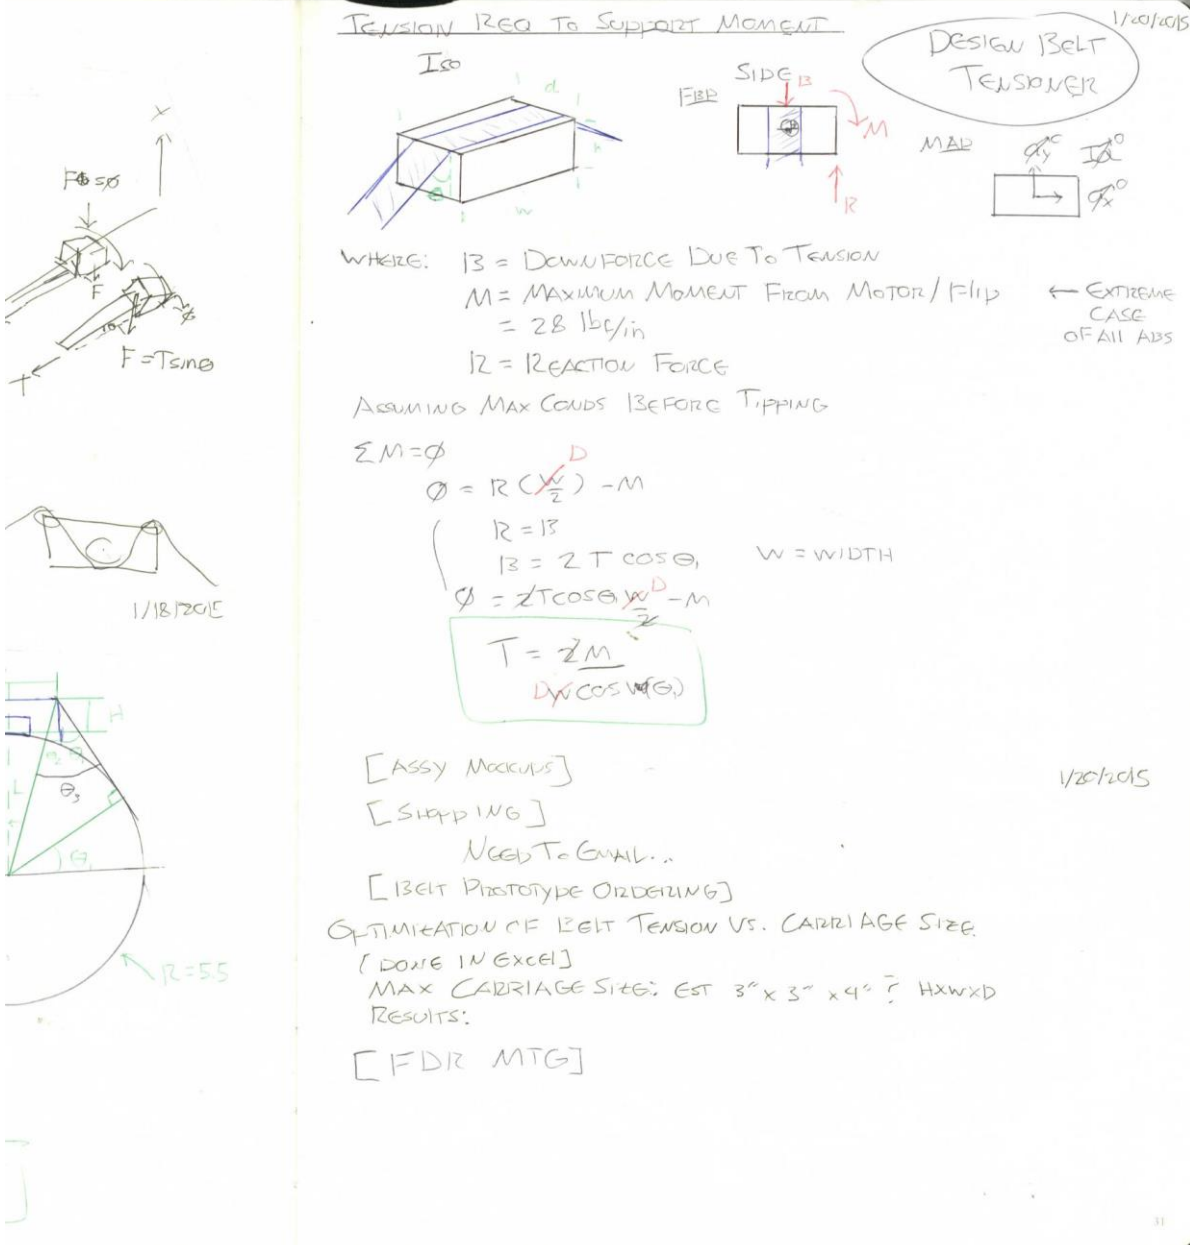 TENSION REQ TO SUPPORT MOMENT
1/20/2015
DESIGN BELT
TENSIONER
ISO
d
w
θ
SIDE
FBD
B
M
R
MAD
WHERE: B = DOWNFORCE DUE TO TENSION
M = MAXIMUM MOMENT FROM MOTOR/Flip
= 28 lbf/in
← EXTREME
CASE
OF All ABS
R = REACTION FORCE
ASSUMING MAX CONDS BEFORE TIPPING
ΣM=Ø
Ø = R(W/2) D - M
R = B
B = 2 T COS θ₁
W = WIDTH
Ø = 2TCOSθ₁ W/2 D - M
T = 2M
DW COS (θ₁)
[ASSY MOCKUPS]
1/20/2015
[SHOPPING]
NEED TO EMAIL...
[BELT PROTOTYPE ORDERING]
OPTIMIZATION OF BELT TENSION VS. CARRIAGE SIZE
[DONE IN EXCEl]
MAX CARRIAGE SIZE: EST 3" x 3" x 4" ? HxWxD
RESULTS:
[FDR MTG]
31
x
F
φ
F = Tsinθ
T
1/18/2015
H
L
θ₃
θ₁
R=5.5